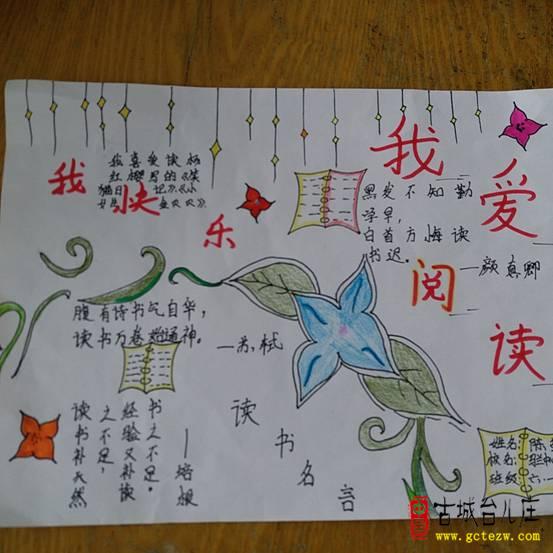 我快乐
我喜爱读杨
红樱写的《笑
猫日记》《小
我爱阅读
黑发不知勤
学早,
白首方悔读
书迟。
—颜真卿
腹有诗书气自华,
读书万卷
通神。
—苏轼
读书名言
书之不足。
经验又补读
之不足,
读书补天然
—培根
姓名:陈
校名:
班级:六
中国
古城台儿庄
www.gctezw.com